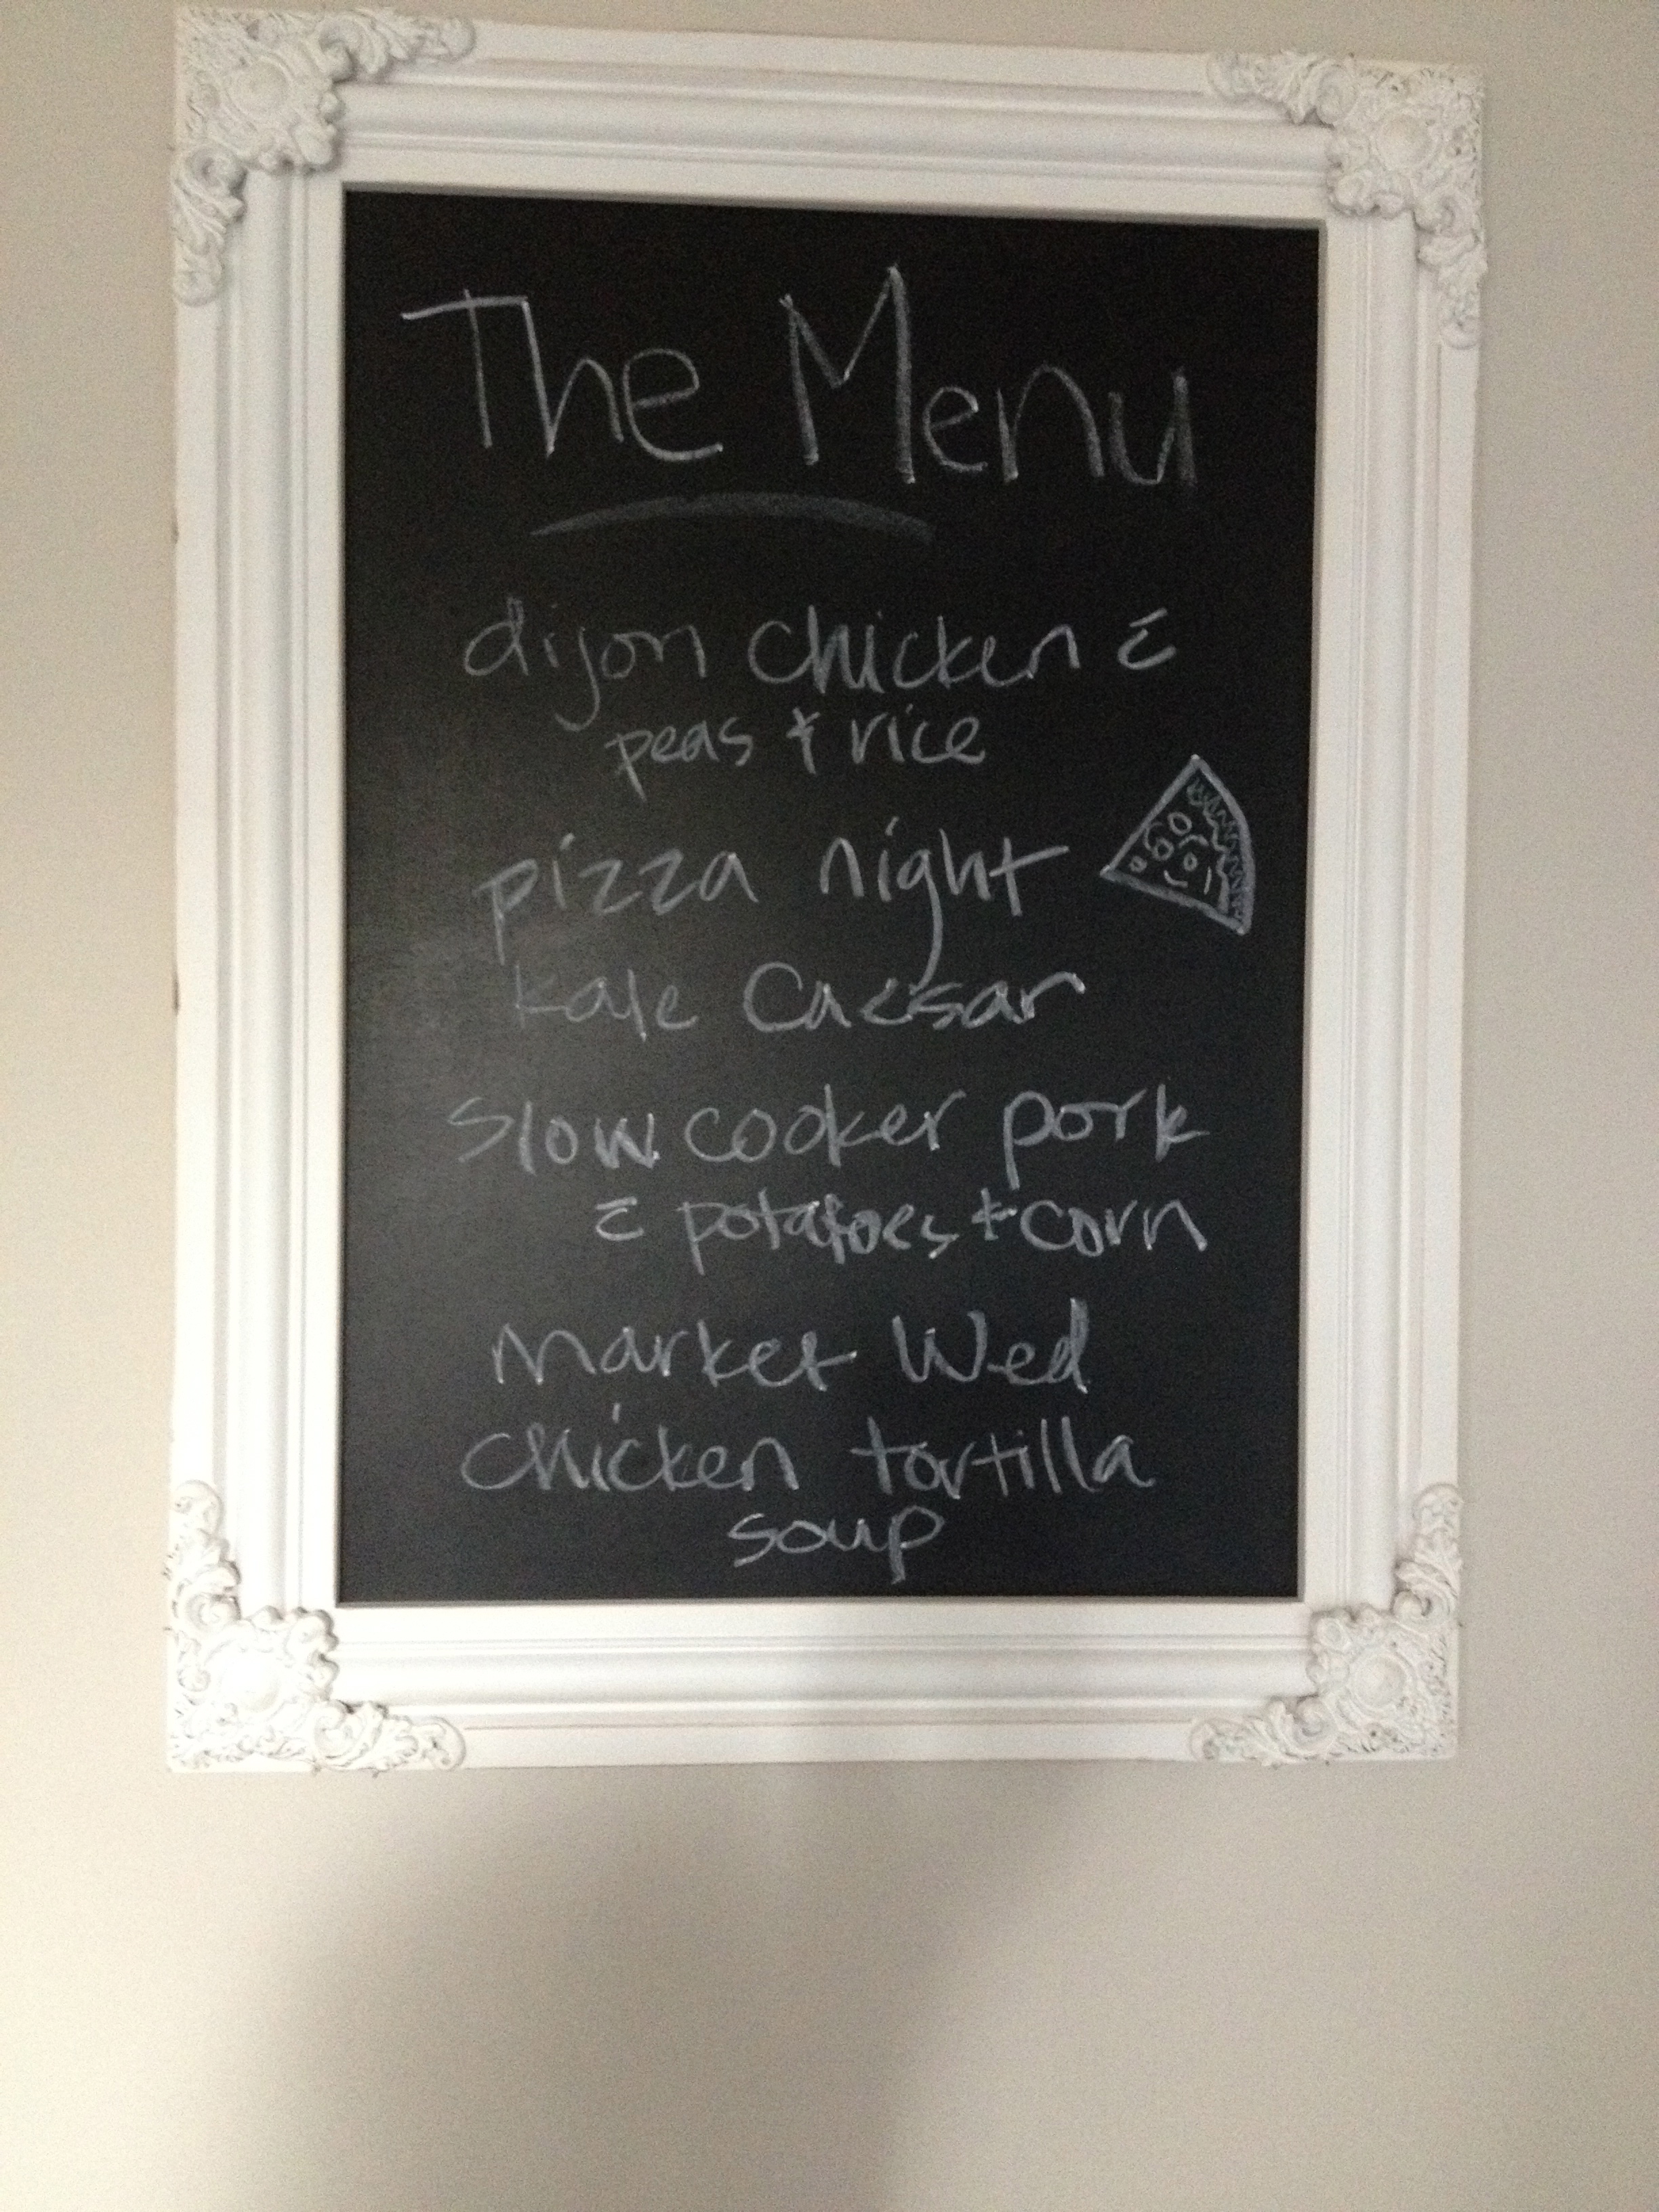 The Menu
dijon chicken c̄
peas + rice
pizza night
kale Caesar
slow cooker pork
c̄ potatoes + corn
market Wed
chicken tortilla
soup